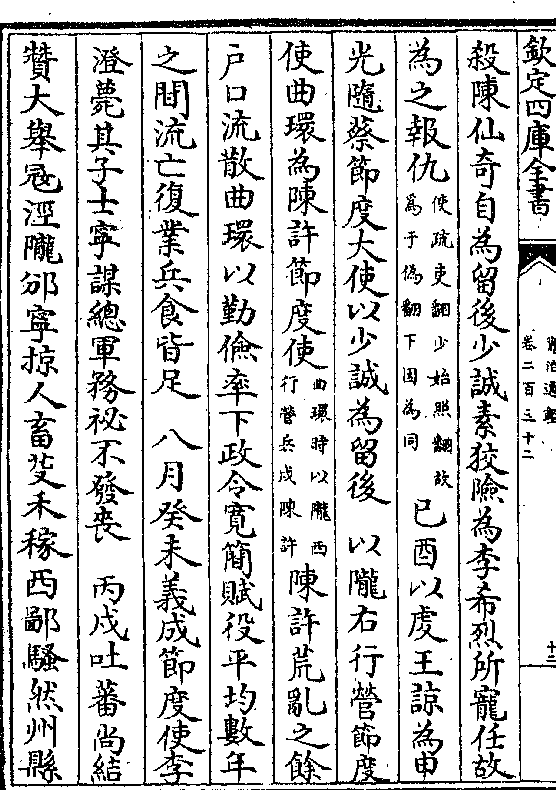 欽定四庫全書
資治通鑑
卷二百三十二
十二
殺陳仙奇自為留後少誠素狡險為李希烈所寵任故
為之報仇
使疏吏翻少始照翻故
為于偽翻下因為同
已酉以虔王諒為申
光隨蔡節度大使以少誠為留後 以隴右行營節度
使曲環為陳許節度使
曲環時以隴西
行營兵戍陳許
陳許荒亂之餘
户口流散曲環以勤儉率下政令寛簡賦役平均數年
之間流亡復業兵食皆足 八月癸未義成節度使李
澄薨其子士寧謀總軍務祕不發喪 丙戌吐蕃尚結
贊大舉冦涇隴邠寧掠人畜芟禾稼西鄙騷然州縣